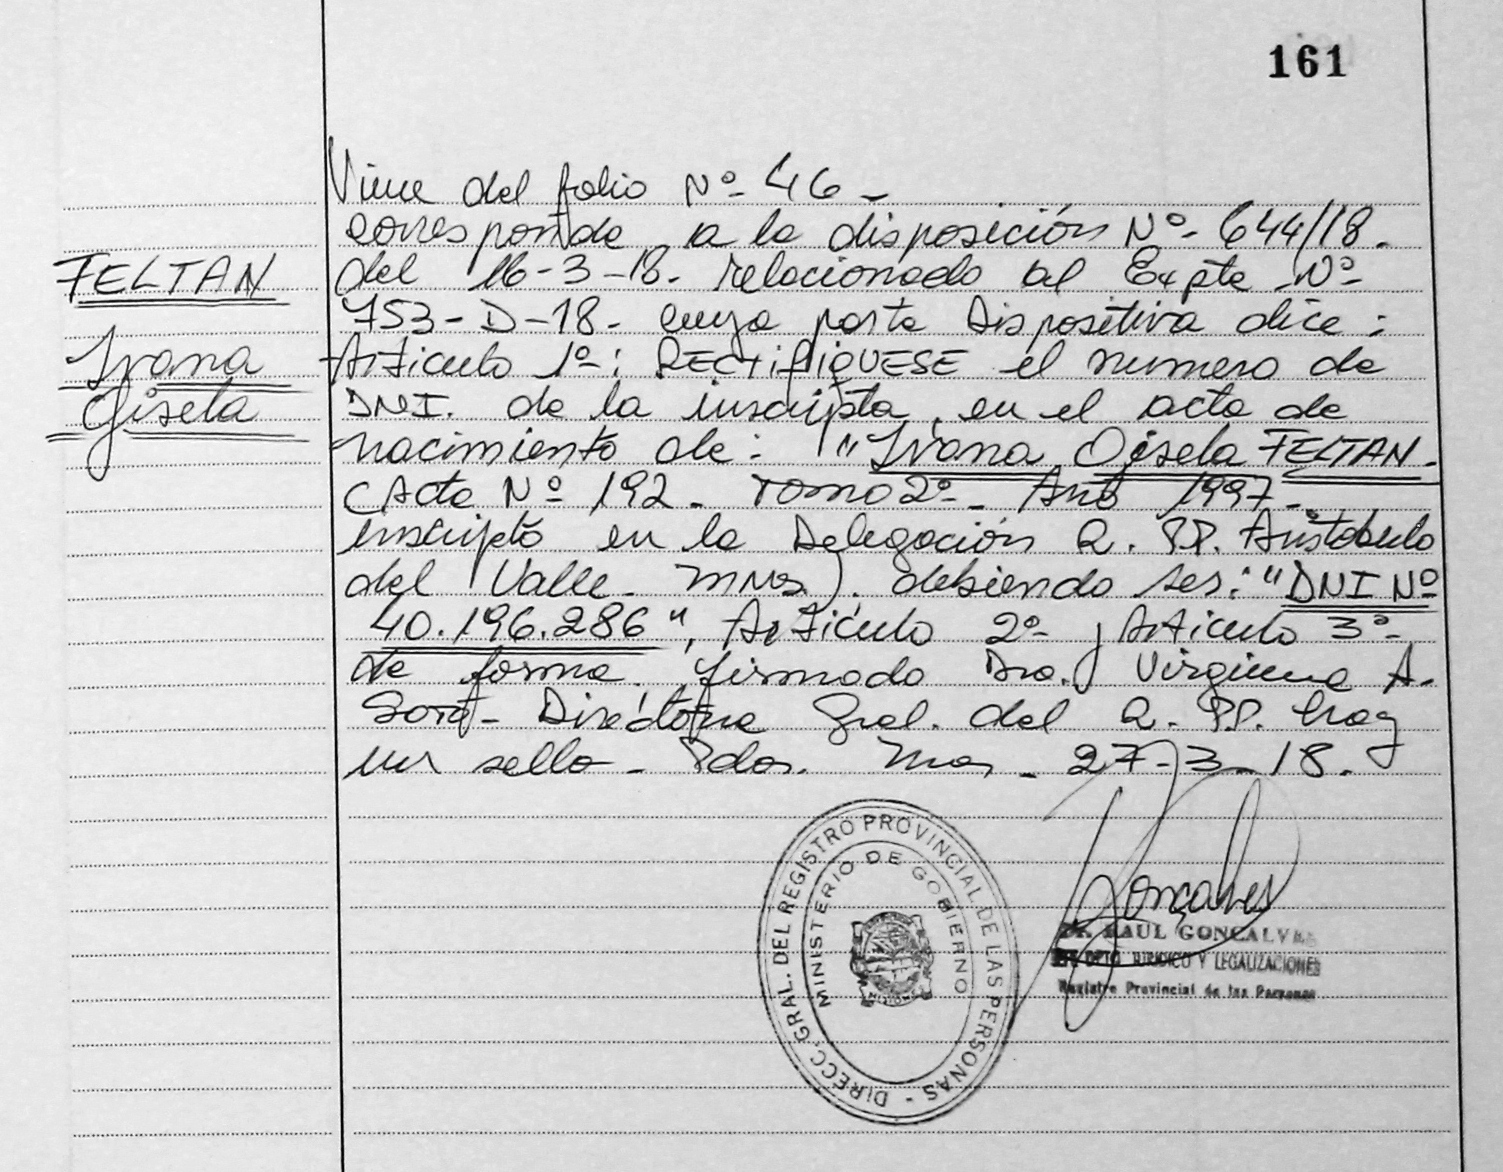 161
Viene del folio Nº 46 -
corresponde, a la disposición Nº 644/18.
del 16-3-18. relacionado al Expte Nº
753-D-18. cuya parte Dispositiva dice:
Articulo 1º: RECTIFIQUESE el numero de
DNI. de la inscripta, en el acta de
nacimiento de: "Ivana Gisela FELTAN.
(Acta Nº 192. Tomo 2º- Año 1997.
inscripto en la Delegación R.PP. Aristobulo
del Valle. Mnes). debiendo ser: "DNI Nº
40.196.286", Articulo 2º y Articulo 3º-
de forma. firmado Dra. Virginia A.
Directora Gral. del R.PP. hay
un sello - Pdas. Mnes. 27-3-18.
FELTAN
Ivana
Gisela
DIRECC. GRAL. DEL REGISTRO PROVINCIAL DE LAS PERSONAS -
MINISTERIO DE GOBIERNO
MISIONES
Goncalves
Dr. RAUL GONCALVES
DPTO. JURIDICO Y LEGALIZACIONES
Registro Provincial de las Personas